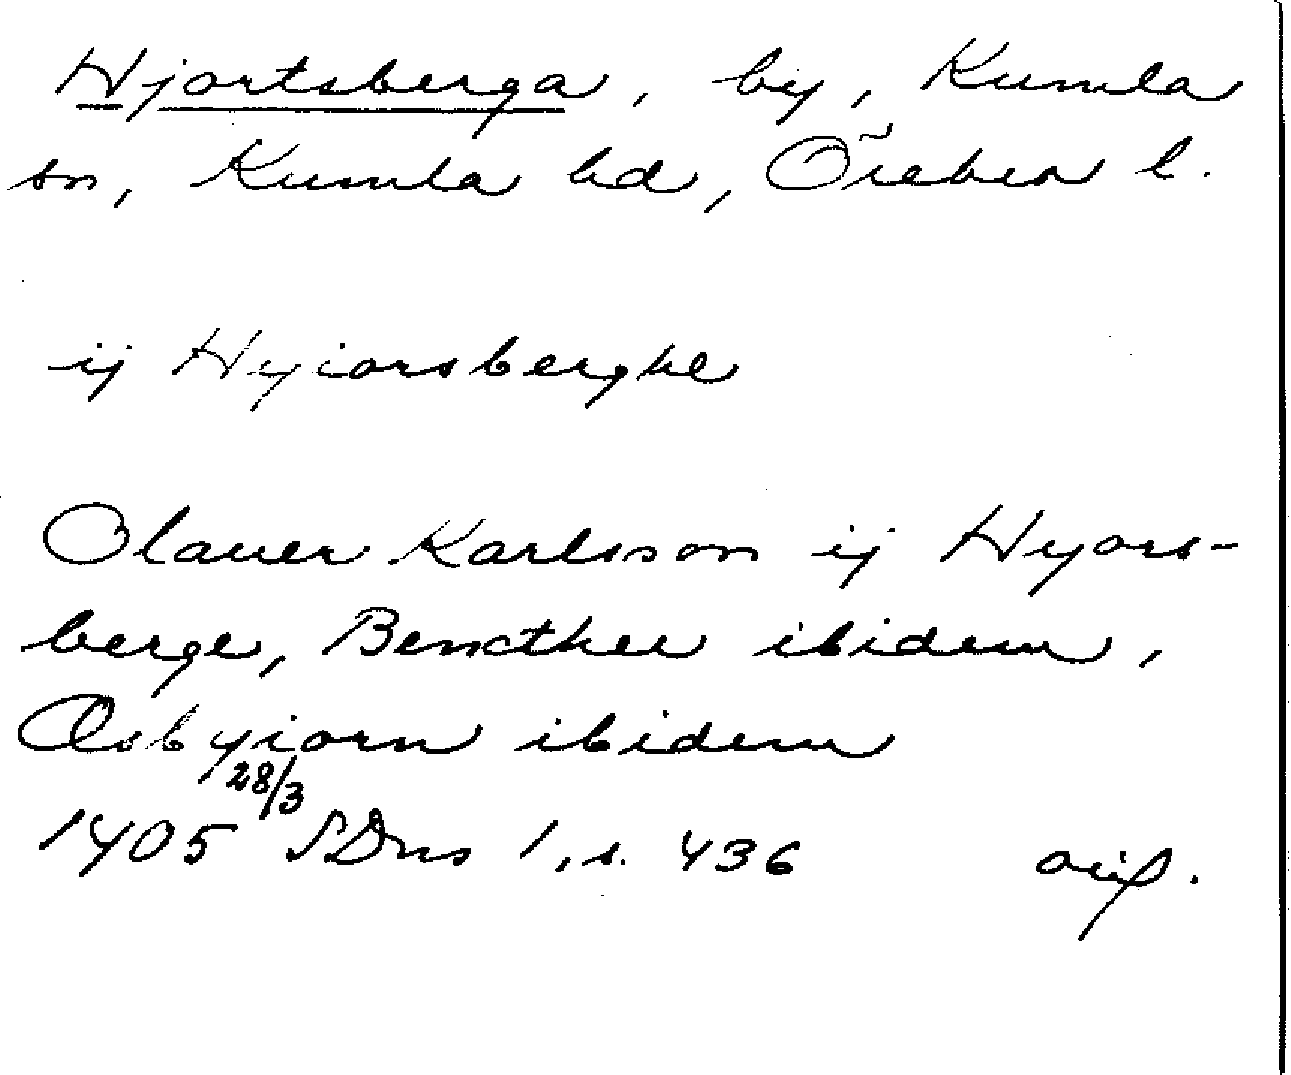 Hjortsberga, by, Kumla
sn, Kumla hd, Örebro l.
ij Hyiorsberghe
Olauer Karlsson ij Hyors-
berge, Bencther ibidem,
Æsbyiorn ibidem
1405 28/3 SDns 1, s. 436 avf.